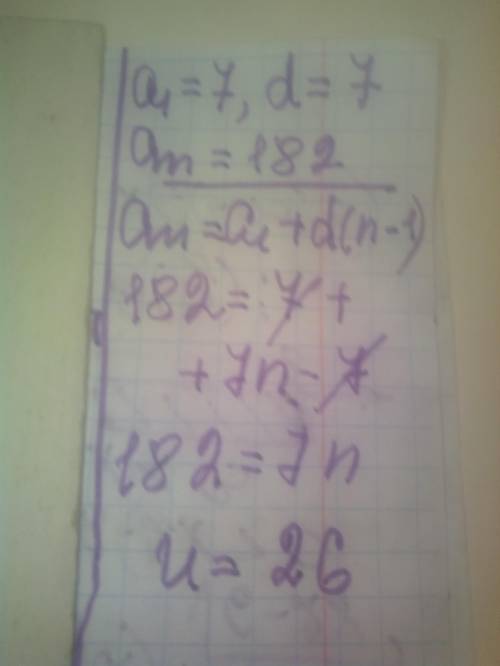 a₁ = 7, d = 7
aₙ = 182
aₙ = a₁ + d(n-1)
182 = 7 +
+ 7n - 7
182 = 7n
n = 26